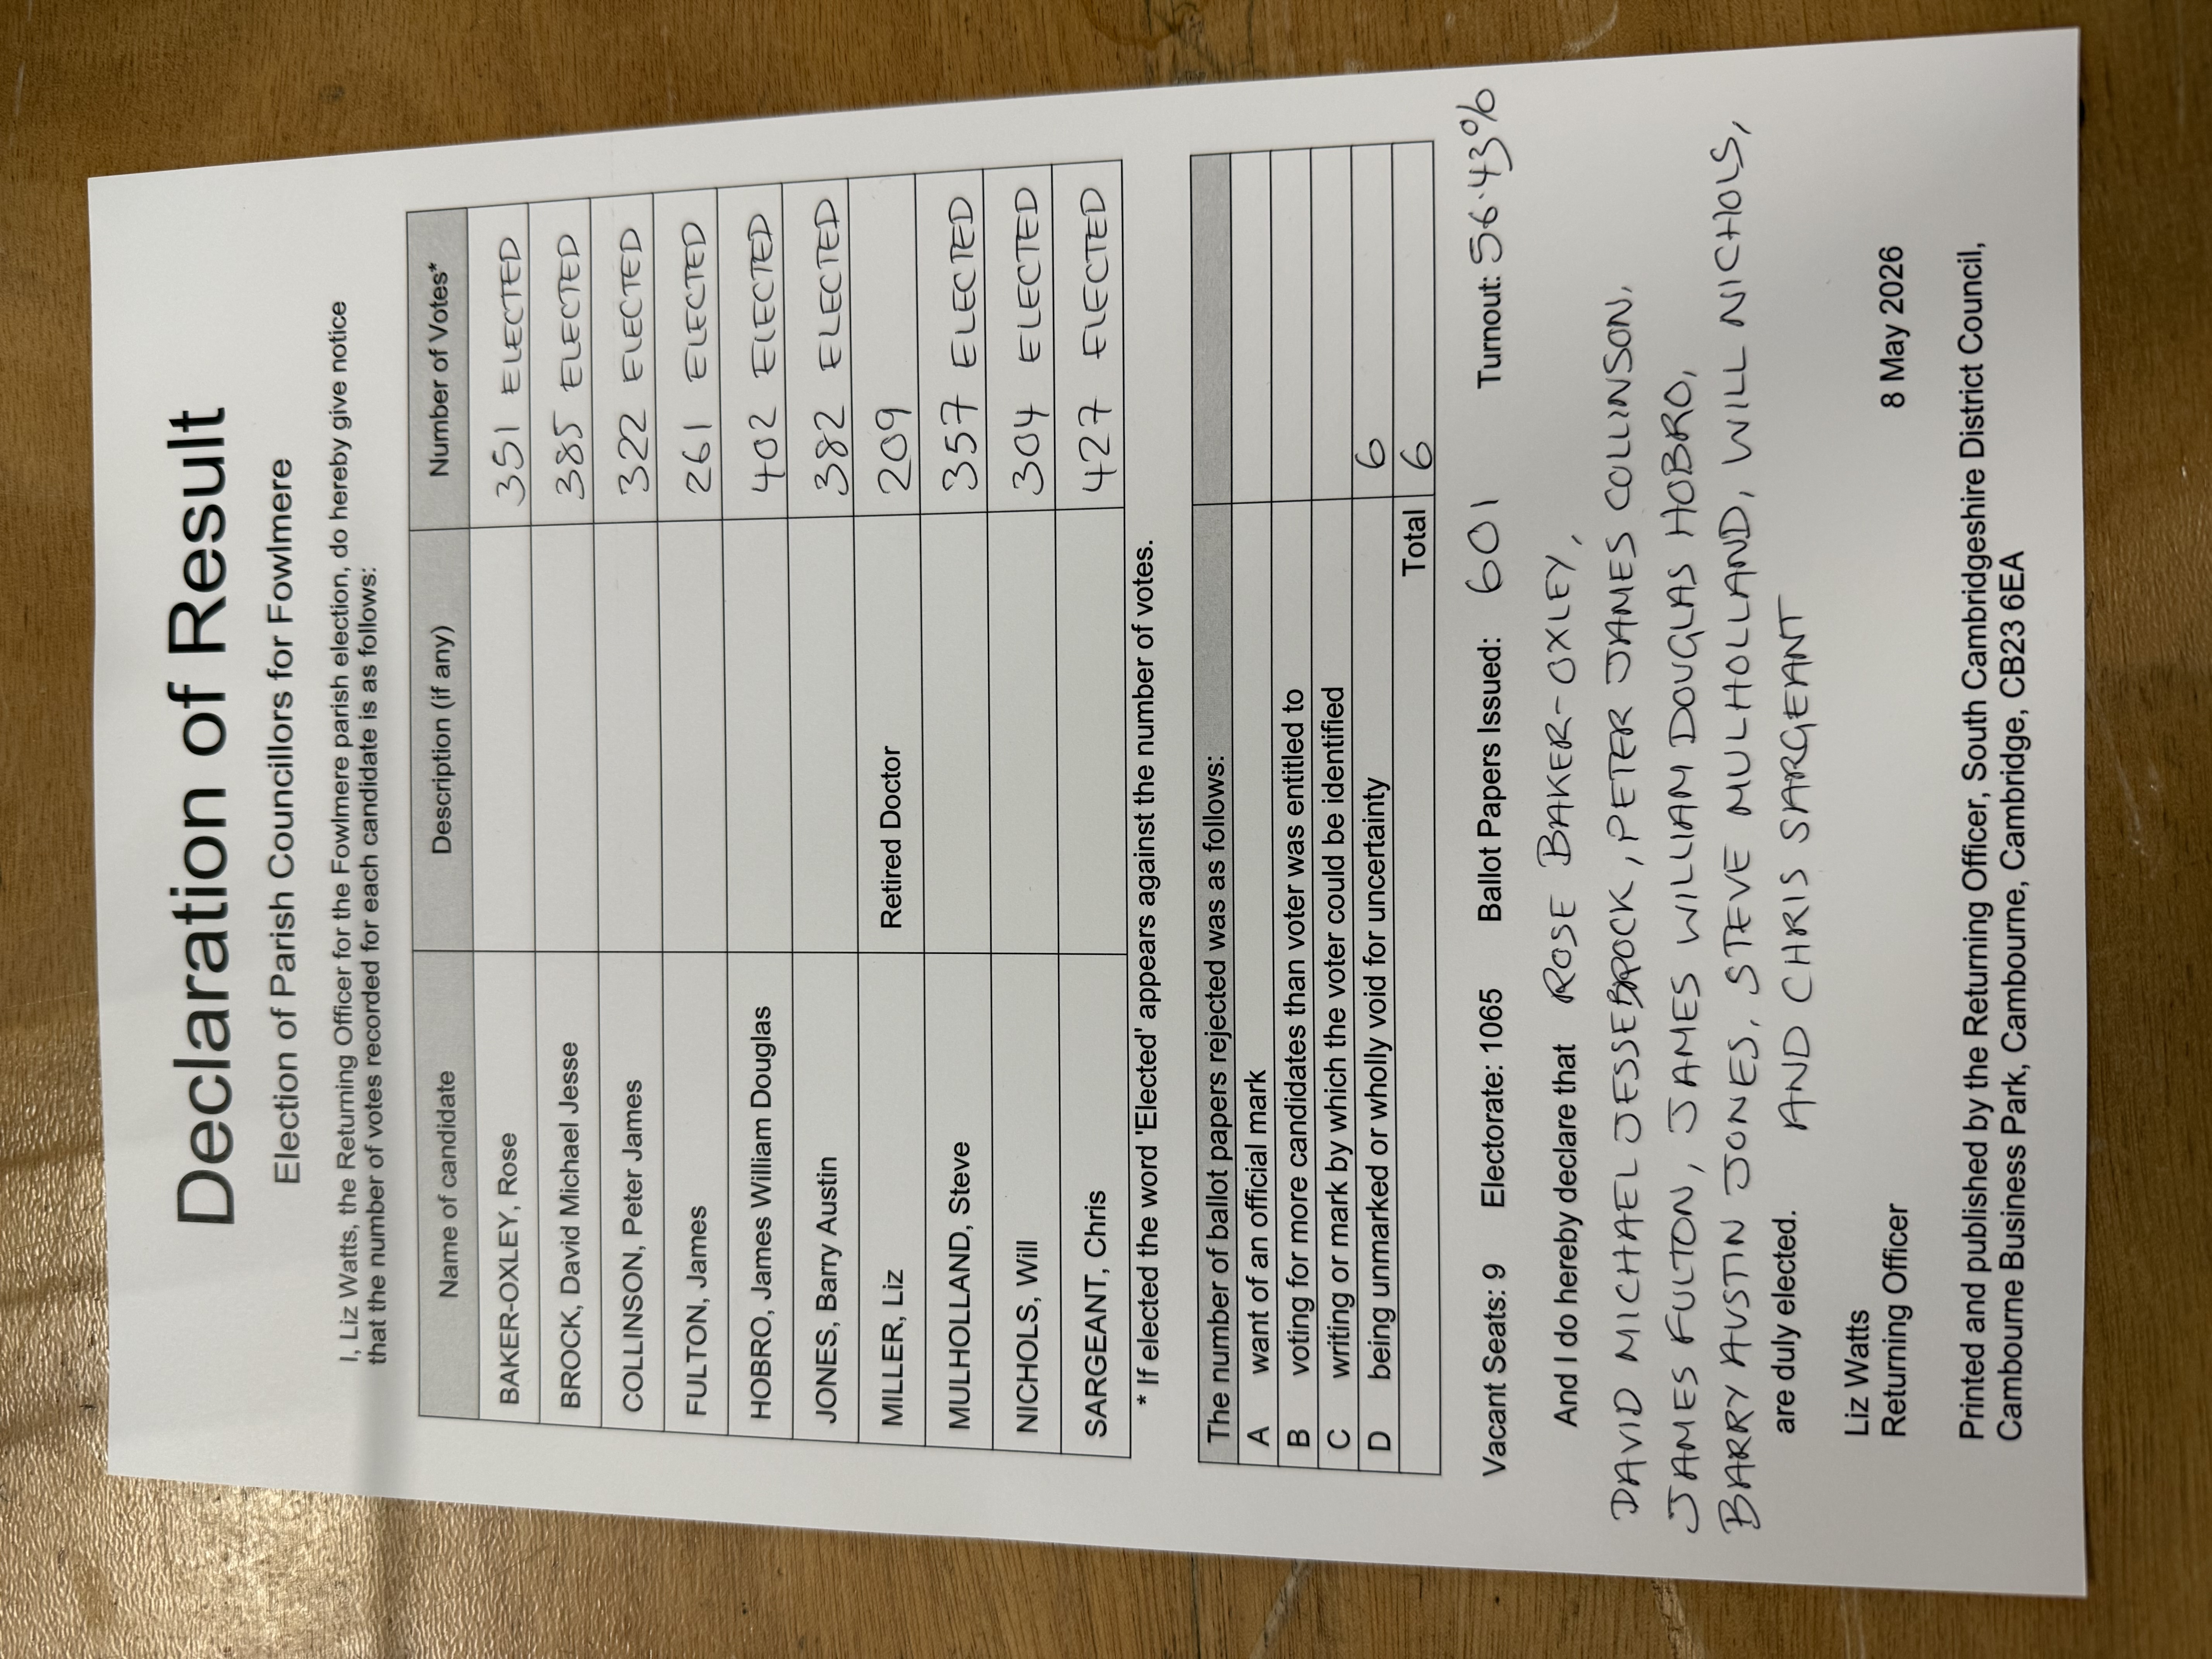 Declaration of Result
Election of Parish Councillors for Fowlmere
I, Liz Watts, the Returning Officer for the Fowlmere parish election, do hereby give notice
that the number of votes recorded for each candidate is as follows:
Name of candidate Description (if any) Number of Votes*
BAKER-OXLEY, Rose 351 ELECTED
BROCK, David Michael Jesse 385 ELECTED
COLLINSON, Peter James 322 ELECTED
FULTON, James 261 ELECTED
HOBRO, James William Douglas 402 ELECTED
JONES, Barry Austin 382 ELECTED
MILLER, Liz Retired Doctor 209
MULHOLLAND, Steve 357 ELECTED
NICHOLS, Will 304 ELECTED
SARGEANT, Chris 427 ELECTED
* If elected the word 'Elected' appears against the number of votes.
The number of ballot papers rejected was as follows:
A want of an official mark
B voting for more candidates than voter was entitled to
C writing or mark by which the voter could be identified
D being unmarked or wholly void for uncertainty 6
Total 6
Vacant Seats: 9 Electorate: 1065 Ballot Papers Issued: 601 Turnout: 56.43%
And I do hereby declare that ROSE BAKER-OXLEY,
DAVID MICHAEL JESSE BROCK, PETER JAMES COLLINSON,
JAMES FULTON, JAMES WILLIAM DOUGLAS HOBRO,
BARRY AUSTIN JONES, STEVE MULHOLLAND, WILL NICHOLS,
AND CHRIS SARGEANT
are duly elected.
Liz Watts
Returning Officer 8 May 2026
Printed and published by the Returning Officer, South Cambridgeshire District Council,
Cambourne Business Park, Cambourne, Cambridge, CB23 6EA